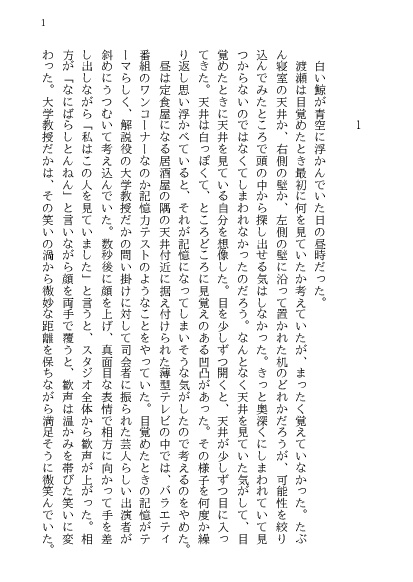 1
1
白い鯨が青空に浮かんでいた日の昼時だった。
渡瀬は目覚めたとき最初に何を見ていたか考えていたが、まったく覚えていなかった。たぶ
ん寝室の天井か、右側の壁か、左側の壁に沿って置かれた机のどれかだろうが、可能性を絞り
込んでみたところで頭の中から探し出せる気はしなかった。きっと奥深くにしまわれていて見
つからないのではなくてしまわれなかったのだろう。なんとなく天井を見ていた気がして、目
覚めたときに天井を見ている自分を想像した。目を少しずつ開くと、天井が少しずつ目に入っ
てきた。天井は白っぽくて、ところどころに見覚えのある凹凸があった。その様子を何度か繰
り返し思い浮かべていると、それが記憶になってしまいそうな気がしたので考えるのをやめた。
昼は定食屋になる居酒屋の隅の天井付近に据え付けられた薄型テレビの中では、バラエティ
番組のワンコーナーなのか記憶力テストのようなことをやっていた。目覚めたときの記憶がテ
ーマらしく、解説役の大学教授だかの問い掛けに対して司会者に振られた芸人らしい出演者が
斜めにうつむいて考え込んでいた。数秒後に顔を上げ、真面目な表情で相方に向かって手を差
し出しながら「私はこの人を見ていました」と言うと、スタジオ全体から歓声が上がった。相
方が「なにばらしとんねん」と言いながら顔を両手で覆うと、歓声は温かみを帯びた笑いに変
わった。大学教授だかは、その笑いの渦から微妙な距離を保ちながら満足そうに微笑んでいた。